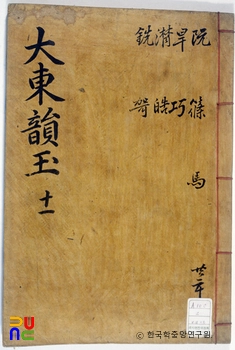 大東韻玉 十一
阮旱潸銑
篠巧皓哿
馬
共二十
UNC
© 한국학중앙연구원